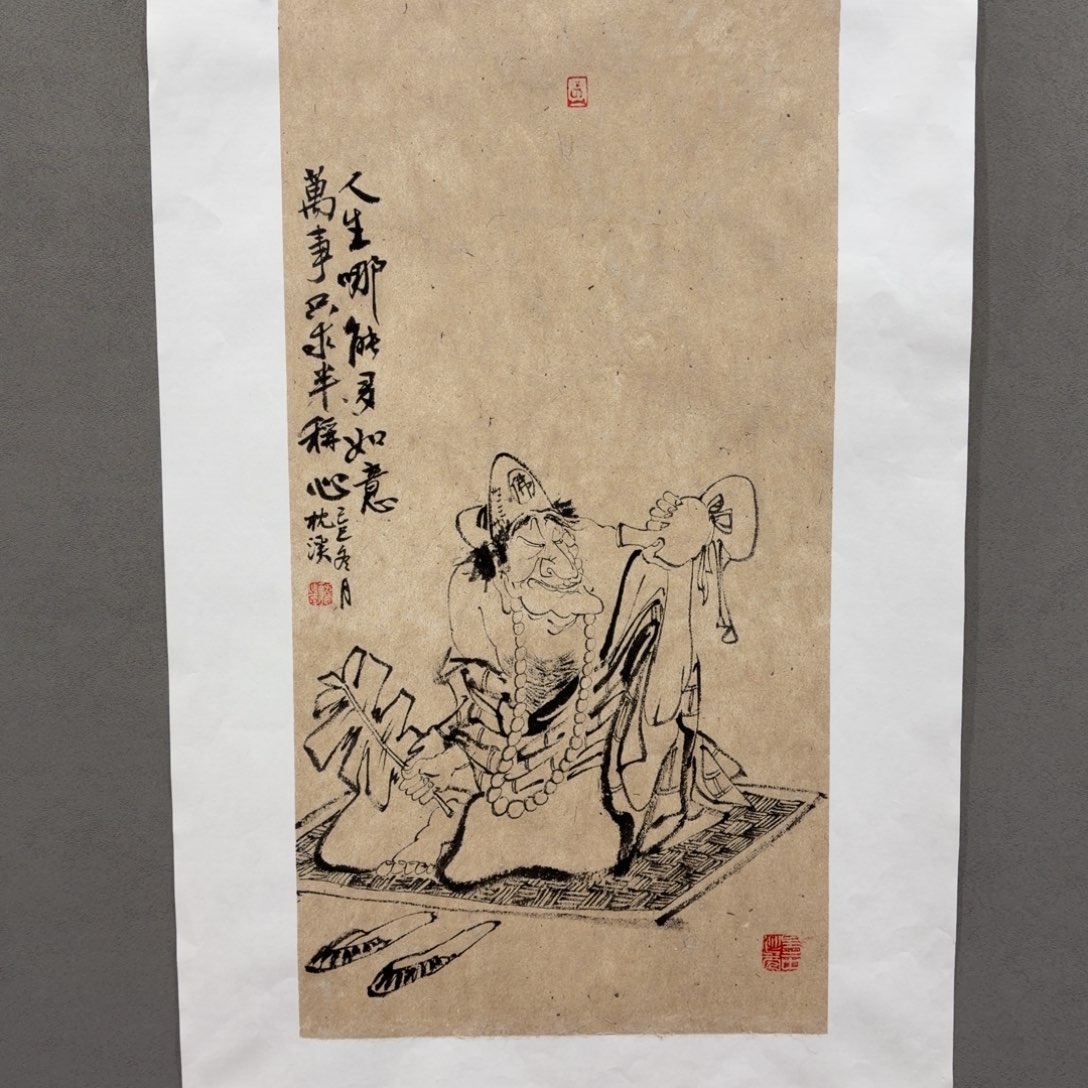 人生哪能多如意
萬事只求半稱心
己巳冬月
枕溪
佛